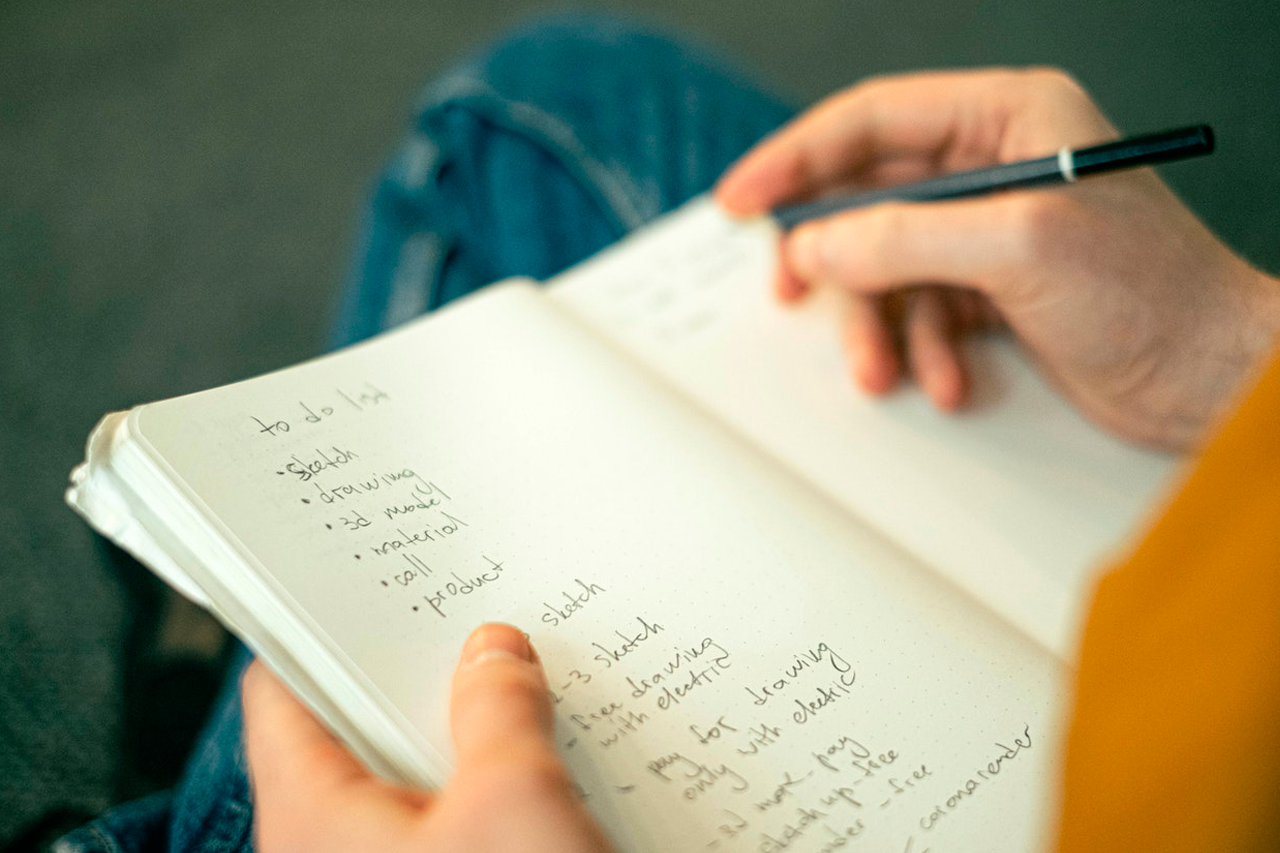 to do list
• sketch
• drawing
• 3d model
• material
• call
• product
sketch
2-3 sketch
- free drawing
with electric
- pay for drawing
only with electric
- 3d max - pay
sketch up - free
- free
- coronarender